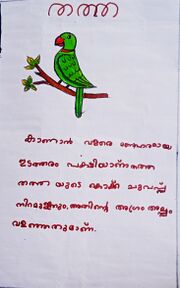 തത്ത
കാണാൻ വളരെ മനോഹരമായ
ഒരിനം പക്ഷിയാണ് തത്ത
തത്ത യുടെ കൊക്ക് ചുവപ്പ്
നിറമുള്ളതും, അതിന്റെ അഗ്രം അല്പം
വളഞ്ഞതുമാണ്.